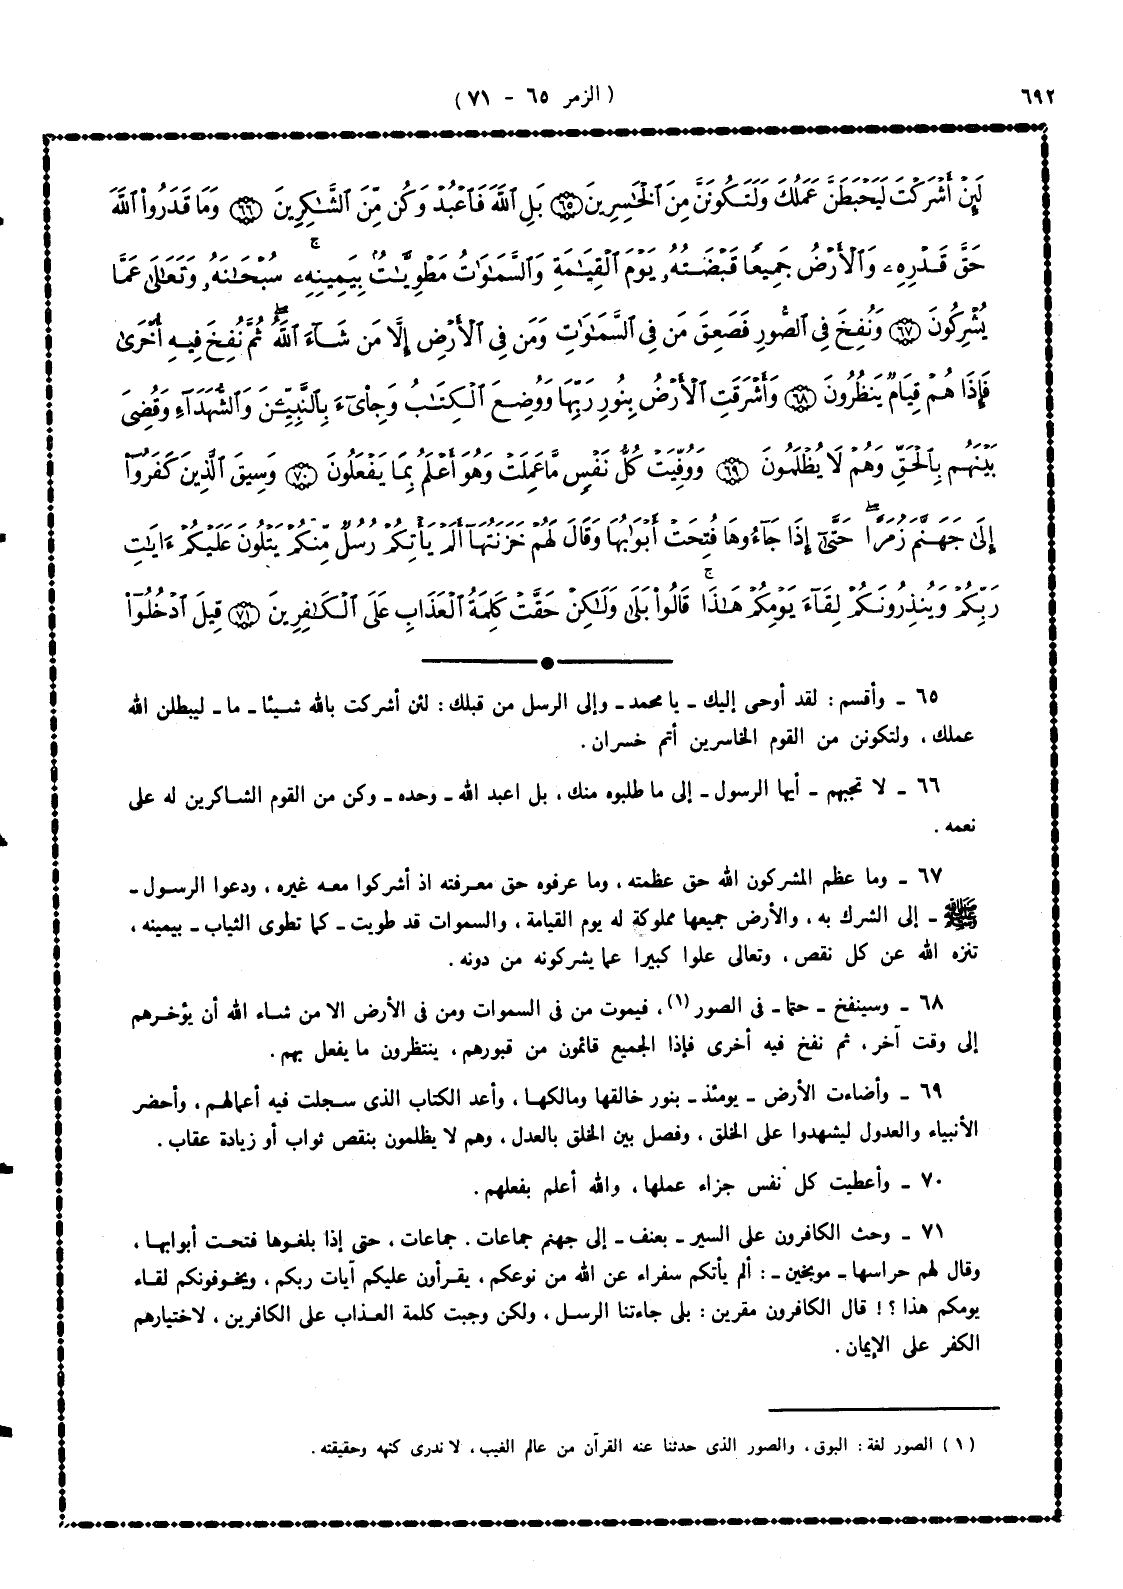 ٦٩٢
( الزمر ٦٥ - ٧١ )
لَئِنْ أَشْرَكْتَ لَيَحْبَطَنَّ عَمَلُكَ وَلَتَكُونَنَّ مِنَ ٱلْخَٰسِرِينَ ۝٦٥ بَلِ ٱللَّهَ فَٱعْبُدْ وَكُن مِّنَ ٱلشَّٰكِرِينَ ۝٦٦ وَمَا قَدَرُوا۟ ٱللَّهَ
حَقَّ قَدْرِهِۦ وَٱلْأَرْضُ جَمِيعًا قَبْضَتُهُۥ يَوْمَ ٱلْقِيَٰمَةِ وَٱلسَّمَٰوَٰتُ مَطْوِيَّٰتٌۢ بِيَمِينِهِۦ ۚ سُبْحَٰنَهُۥ وَتَعَٰلَىٰ عَمَّا
يُشْرِكُونَ ۝٦٧ وَنُفِخَ فِى ٱلصُّورِ فَصَعِقَ مَن فِى ٱلسَّمَٰوَٰتِ وَمَن فِى ٱلْأَرْضِ إِلَّا مَن شَآءَ ٱللَّهُ ۖ ثُمَّ نُفِخَ فِيهِ أُخْرَىٰ
فَإِذَا هُمْ قِيَامٌ يَنظُرُونَ ۝٦٨ وَأَشْرَقَتِ ٱلْأَرْضُ بِنُورِ رَبِّهَا وَوُضِعَ ٱلْكِتَٰبُ وَجِا۟ىٓءَ بِٱلنَّبِيِّـۧنَ وَٱلشُّهَدَآءِ وَقُضِىَ
بَيْنَهُم بِٱلْحَقِّ وَهُمْ لَا يُظْلَمُونَ ۝٦٩ وَوُفِّيَتْ كُلُّ نَفْسٍ مَّا عَمِلَتْ وَهُوَ أَعْلَمُ بِمَا يَفْعَلُونَ ۝٧٠ وَسِيقَ ٱلَّذِينَ كَفَرُوٓا۟
إِلَىٰ جَهَنَّمَ زُمَرًا ۖ حَتَّىٰٓ إِذَا جَآءُوهَا فُتِحَتْ أَبْوَٰبُهَا وَقَالَ لَهُمْ خَزَنَتُهَآ أَلَمْ يَأْتِكُمْ رُسُلٌ مِّنكُمْ يَتْلُونَ عَلَيْكُمْ ءَايَٰتِ
رَبِّكُمْ وَيُنذِرُونَكُمْ لِقَآءَ يَوْمِكُمْ هَٰذَا ۚ قَالُوا۟ بَلَىٰ وَلَٰكِنْ حَقَّتْ كَلِمَةُ ٱلْعَذَابِ عَلَى ٱلْكَٰفِرِينَ ۝٧١ قِيلَ ٱدْخُلُوٓا۟
٦٥ ـ وأقسم : لقد أوحى إليك ـ يا محمد ـ وإلى الرسل من قبلك : لئن أشركت بالله شيئا ـ ما ـ ليبطلن الله
عملك ، ولتكونن من القوم الخاسرين أتم خسران .
٦٦ ـ لا تجبهم ـ أيها الرسول ـ إلى ما طلبوه منك ، بل اعبد الله ـ وحده ـ وكن من القوم الشاكرين له على
نعمه .
٦٧ ـ وما عظم المشركون الله حق عظمته ، وما عرفوه حق معرفته اذ أشركوا معه غيره ، ودعوا الرسول ـ
ﷺ ـ إلى الشرك به ، والأرض جميعها مملوكة له يوم القيامة ، والسموات قد طويت ـ كما تطوى الثياب ـ بيمينه ،
تنزه الله عن كل نقص ، وتعالى علوا كبيرا عما يشركونه من دونه .
٦٨ ـ وسينفخ ـ حتما ـ فى الصور (١) ، فيموت من فى السموات ومن فى الأرض الا من شاء الله أن يؤخرهم
إلى وقت آخر ، ثم نفخ فيه أخرى فإذا الجميع قائمون من قبورهم ، ينتظرون ما يفعل بهم .
٦٩ ـ وأضاءت الأرض ـ يومئذ ـ بنور خالقها ومالكها ، وأعد الكتاب الذى سجلت فيه أعمالهم ، وأحضر
الأنبياء والعدول ليشهدوا على الخلق ، وفصل بين الخلق بالعدل ، وهم لا يظلمون بنقص ثواب أو زيادة عقاب .
٧٠ ـ وأعطيت كل نفس جزاء عملها ، والله أعلم بفعلهم .
٧١ ـ وحث الكافرون على السير ـ بعنف ـ إلى جهنم جماعات . جماعات ، حتى إذا بلغوها فتحت أبوابها ،
وقال لهم حراسها ـ موبخين ـ : ألم يأتكم سفراء عن الله من نوعكم ، يقرأون عليكم آيات ربكم ، ويخوفونكم لقاء
يومكم هذا ؟ ! قال الكافرون مقرين : بلى جاءتنا الرسل ، ولكن وجبت كلمة العذاب على الكافرين ، لاختيارهم
الكفر على الإيمان .
( ١ ) الصور لغة : البوق ، والصور الذى حدثنا عنه القرآن من عالم الغيب ، لا ندرى كنهه وحقيقته .